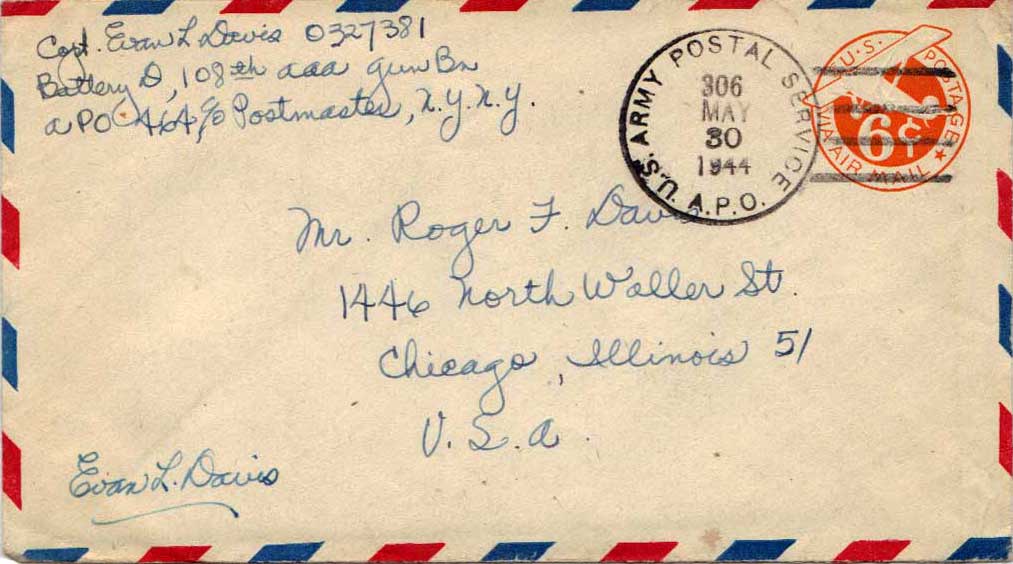 Capt. Evan L Davis 0327381
Battery D, 108th aaa gun Bn
aPO 464, c/o Postmaster, N.Y. N.Y.
U.S. ARMY POSTAL SERVICE
A.P.O.
306
MAY
30
1944
U.S. POSTAGE
6¢
VIA AIR MAIL
Mr. Roger F. Davis
1446 North Waller St.
Chicago, Illinois 51
U.S.a.
Evan L. Davis